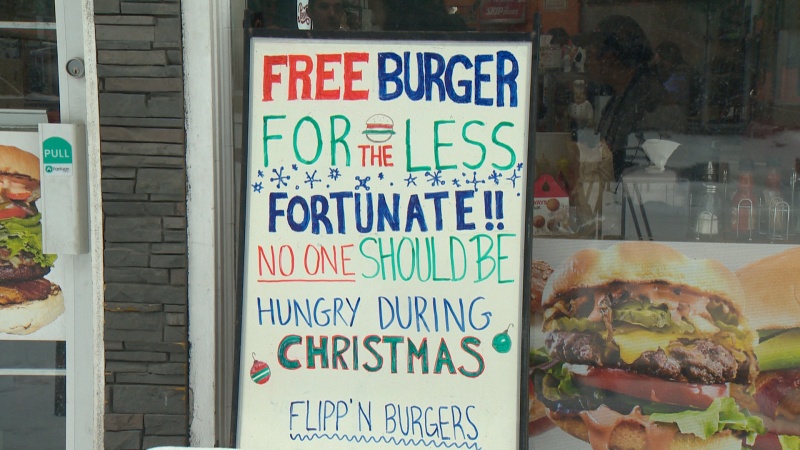 FREE BURGER
FOR THE LESS
FORTUNATE!!
NO ONE SHOULD BE
HUNGRY DURING
CHRISTMAS
FLIPP'N BURGERS
PULL